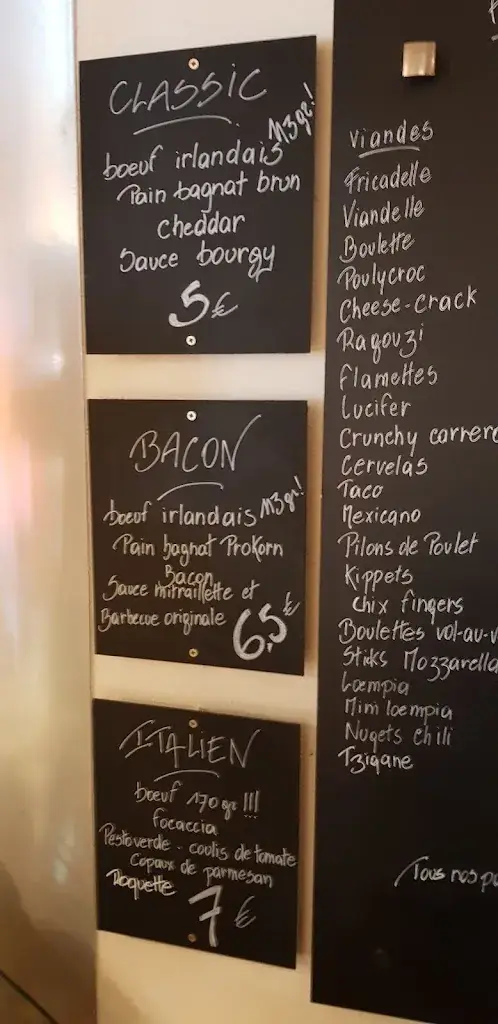 CLASSIC
boeuf irlandais 113gr!
Pain bagnat brun
Cheddar
Sauce bourgy
5€
BACON
boeuf irlandais 113gr!
Pain bagnat Prokorn
Bacon
Sauce mitraillette et
Barbecue originale
6,5€
ITALIEN
boeuf 170gr !!!
focaccia
Pesto verde - coulis de tomate
Copaux de parmesan
Roquette
7€
Viandes
Fricadelle
Viandelle
Boulette
Poulycroc
Cheese-crack
Ragouzi
Flamettes
Lucifer
Crunchy carrero
Cervelas
Taco
Mexicano
Pilons de Poulet
Kippets
Chix fingers
Boulettes vol-au-v
Stiks Mozzarella
Loempia
Mini loempia
Nugets chili
Tzigane
Tous nos